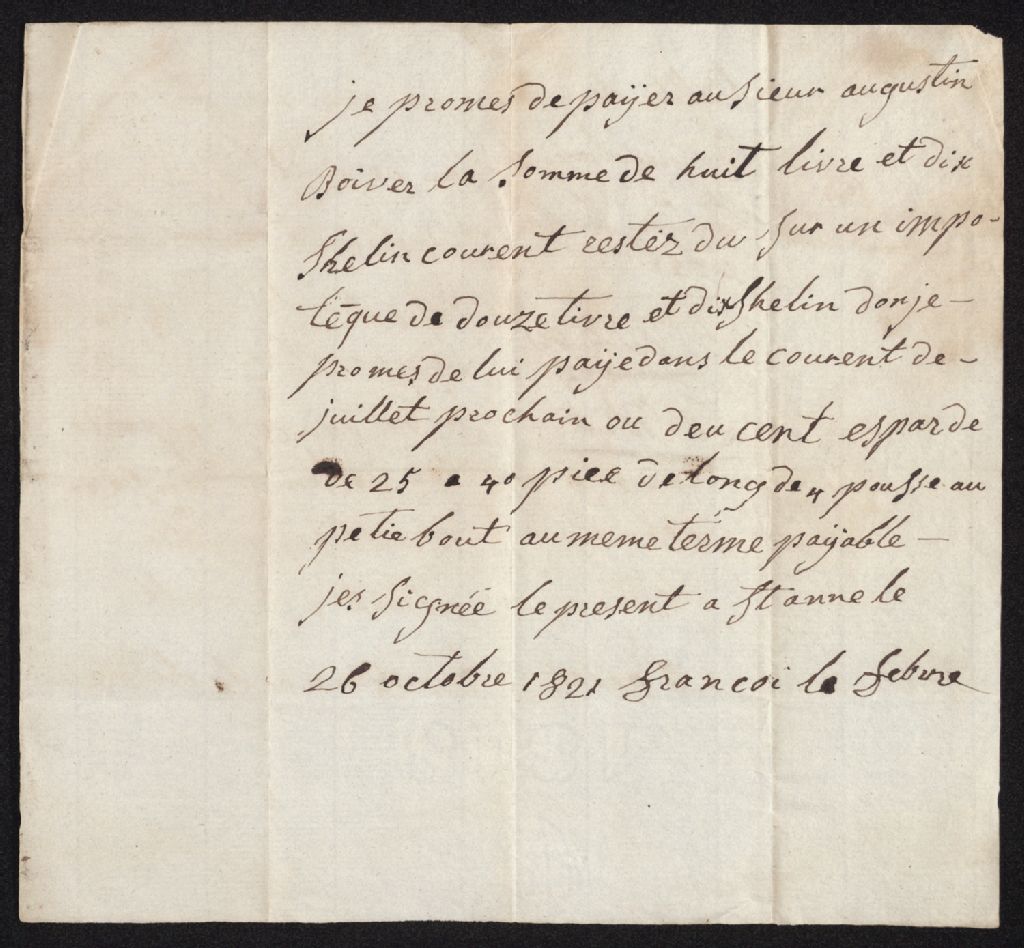 je promes de paÿer au sieur augustin
Boiver la somme de huit livre et dix
Shelin courent restéz du sur un impo-
téque de douze livre et dix Shelin don je -
promes de lui paÿe dans le courent de -
juillet prochain ou deu cent espar de
de 25 a 40 piee de long de 4 pousse au
petie bout au meme terme paÿable -
jes signée le present a St anne le
26 octobre 1821 francoi le febvre